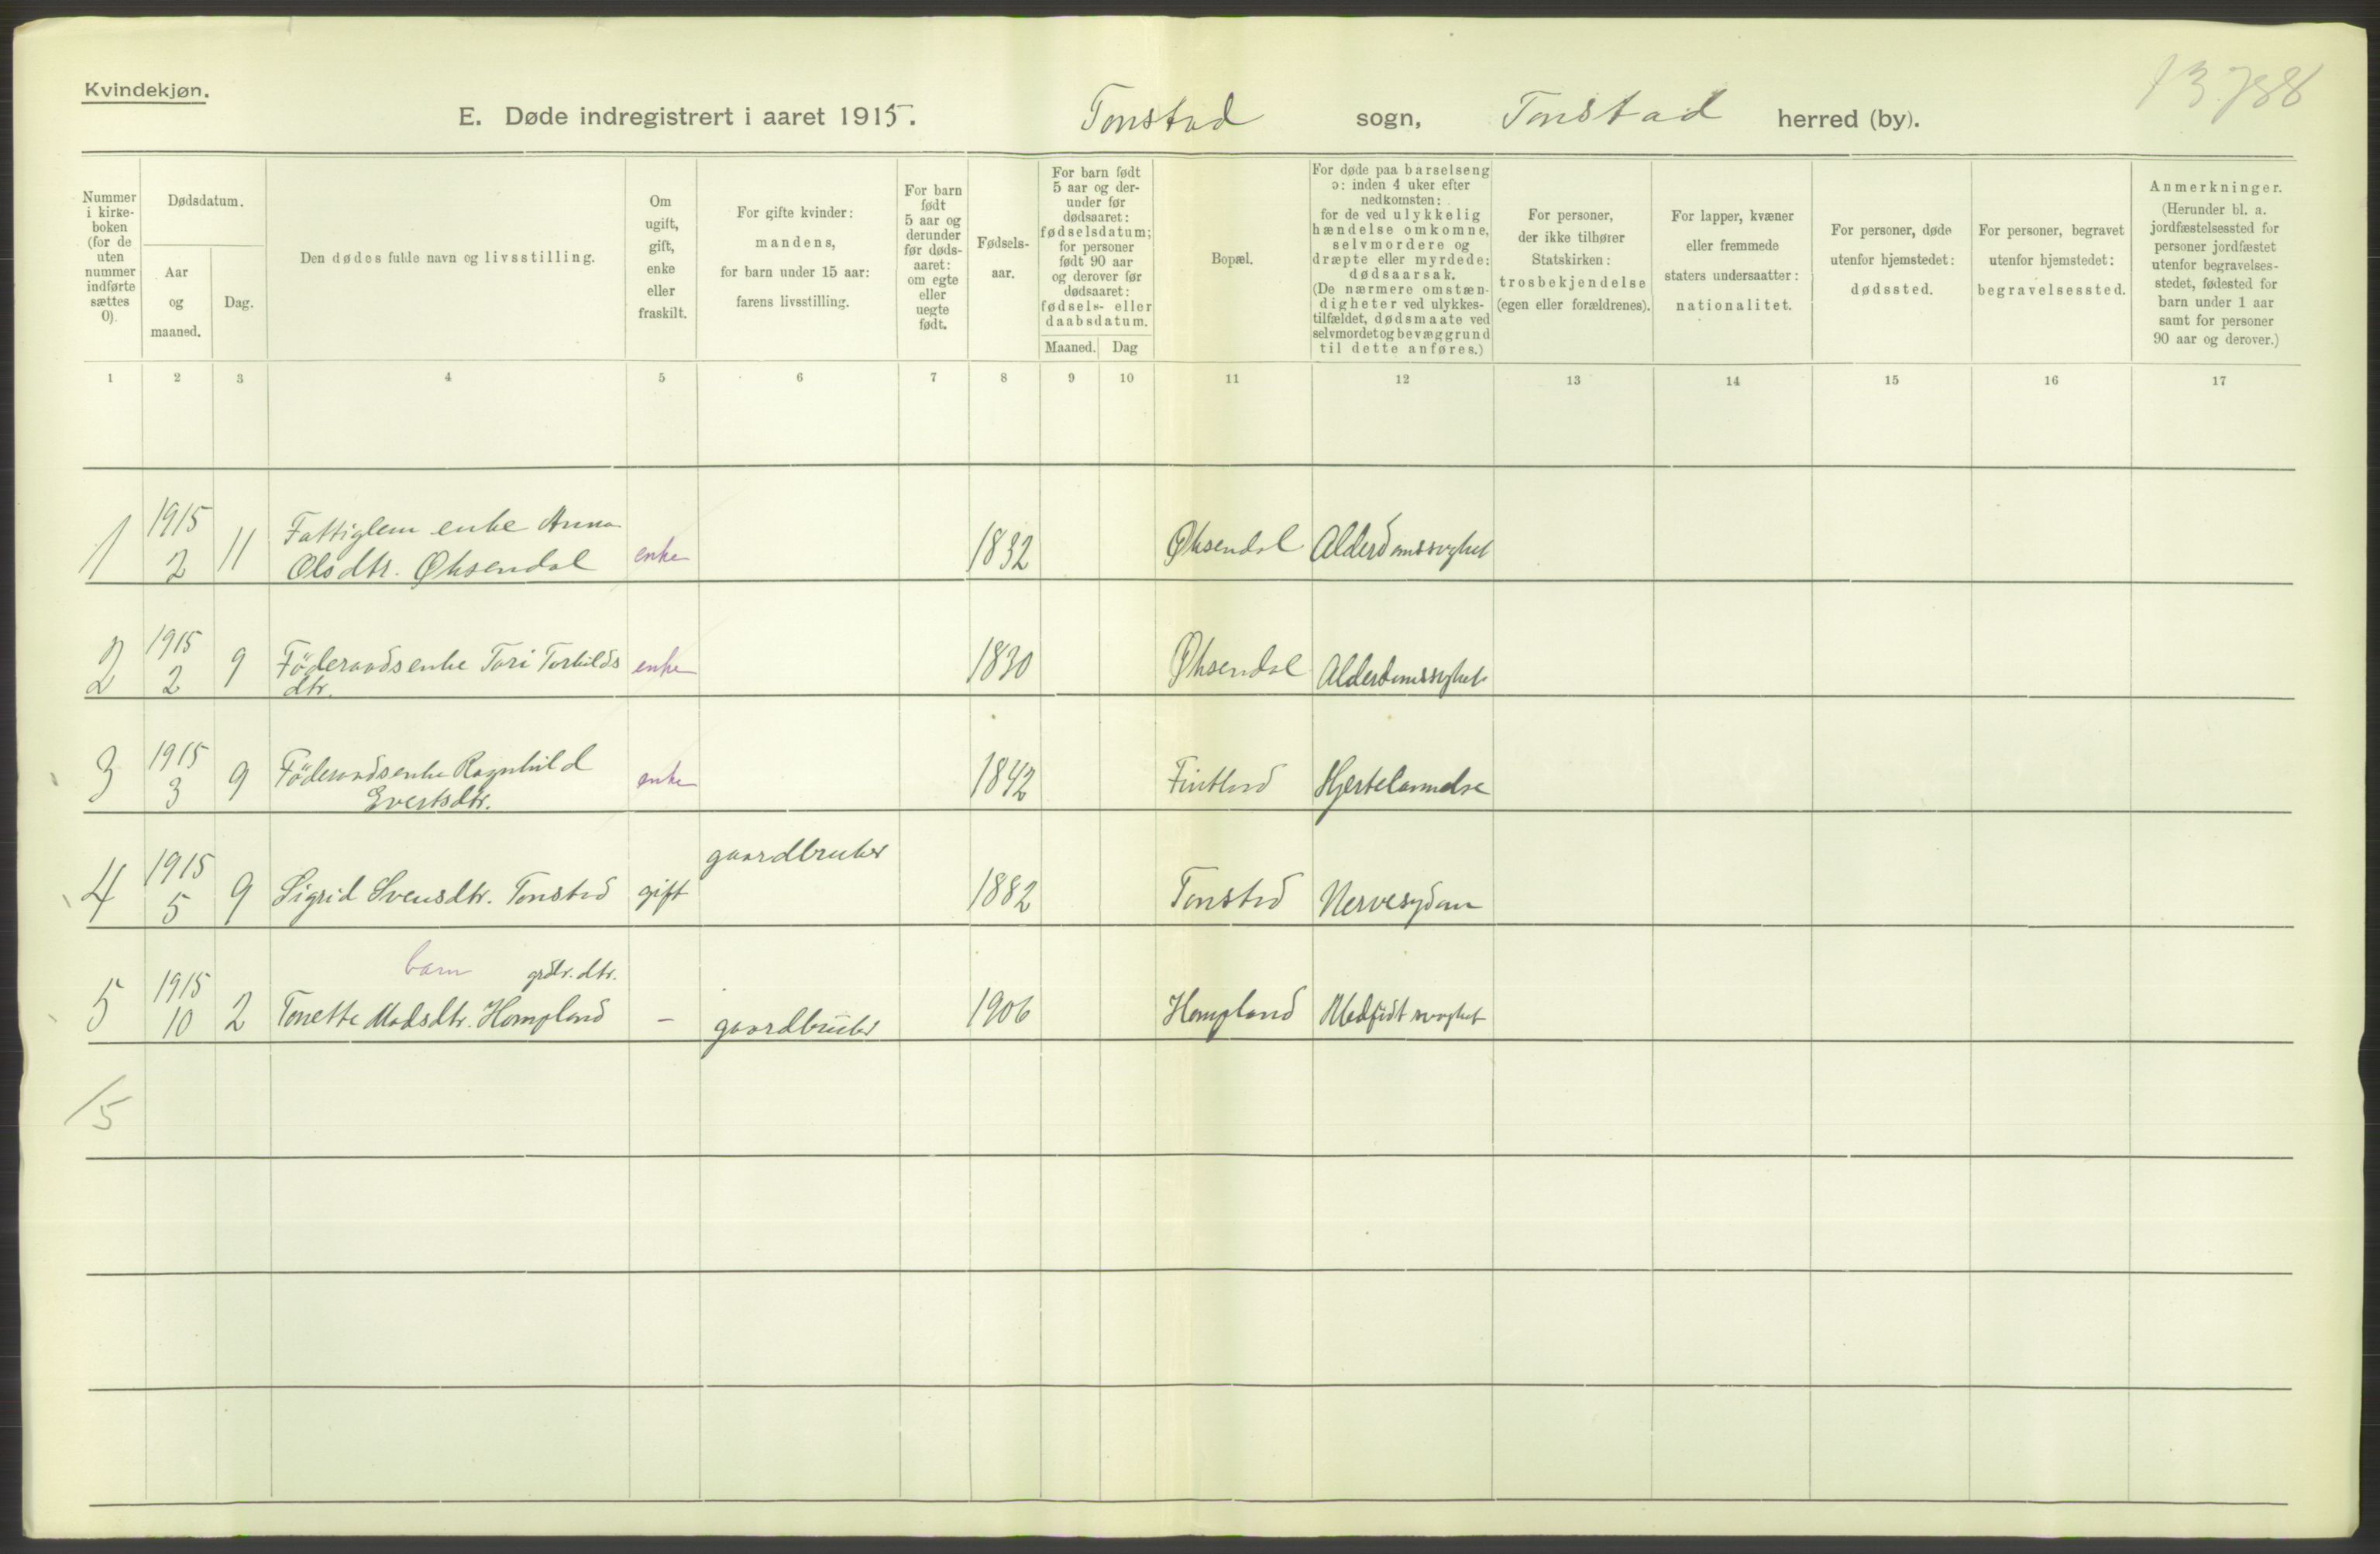 Kvindekjøn.
13.788
E. Døde indregistrert i aaret 1915. Tonstad sogn, Tonstad herred (by).
Nummer i kirke-boken (for de uten nummer indførte sættes 0).
Dødsdatum.
Aar og maaned.
Dag.
Den dødes fulde navn og livsstilling.
Om ugift, gift, enke eller fraskilt.
For gifte kvinder: mandens, for barn under 15 aar: farens livsstilling.
For barn født 5 aar og derunder før døds-aaret: om egte eller uegte født.
Fødsels-aar.
For barn født 5 aar og der-under før dødsaaret: fødselsdatum; for personer født 90 aar og derover før dødsaaret: fødsels- eller daabsdatum.
Maaned. Dag
Bopæl.
For døde paa barselseng ɔ: inden 4 uker efter nedkomsten: for de ved ulykkelig hændelse omkomne, selvmordere og dræpte eller myrdede: dødsaarsak. (De nærmere omstæn-digheter ved ulykkes-tilfældet, dødsmaate ved selvmordet og bevæggrund til dette anføres.)
For personer, der ikke tilhører Statskirken: trosbekjendelse (egen eller forældrenes).
For lapper, kvæner eller fremmede staters undersaatter: nationalitet.
For personer, døde utenfor hjemstedet: dødssted.
For personer, begravet utenfor hjemstedet: begravelsessted.
Anmerkninger. (Herunder bl. a. jordfæstelsessted for personer jordfæstet utenfor begravelses-stedet, fødested for barn under 1 aar samt for personer 90 aar og derover.)
1 2 3 4 5 6 7 8 9 10 11 12 13 14 15 16 17
1 1915 2 11 Fattiglem enke Anna Olsdtr. Øksendal enke 1832 Øksendal Alderdomssvghet
2 1915 2 9 Föderaadsenke Tori Torkilds dtr. enke 1830 Øksendal Alderdomssvghet
3 1915 3 9 Föderaadsenke Ragnhild Evertsdtr. enke 1842 Fintland Hjertelammelse
4 1915 5 9 Sigrid Svensdtr. Tonstad gift gaardbruker 1882 Tonstad Nervesydom
5 1915 10 2 barn grdbr. dtr. Tonette Madsdtr. Hompland – gaardbruker 1906 Hompland Medfödt svaghet
/5